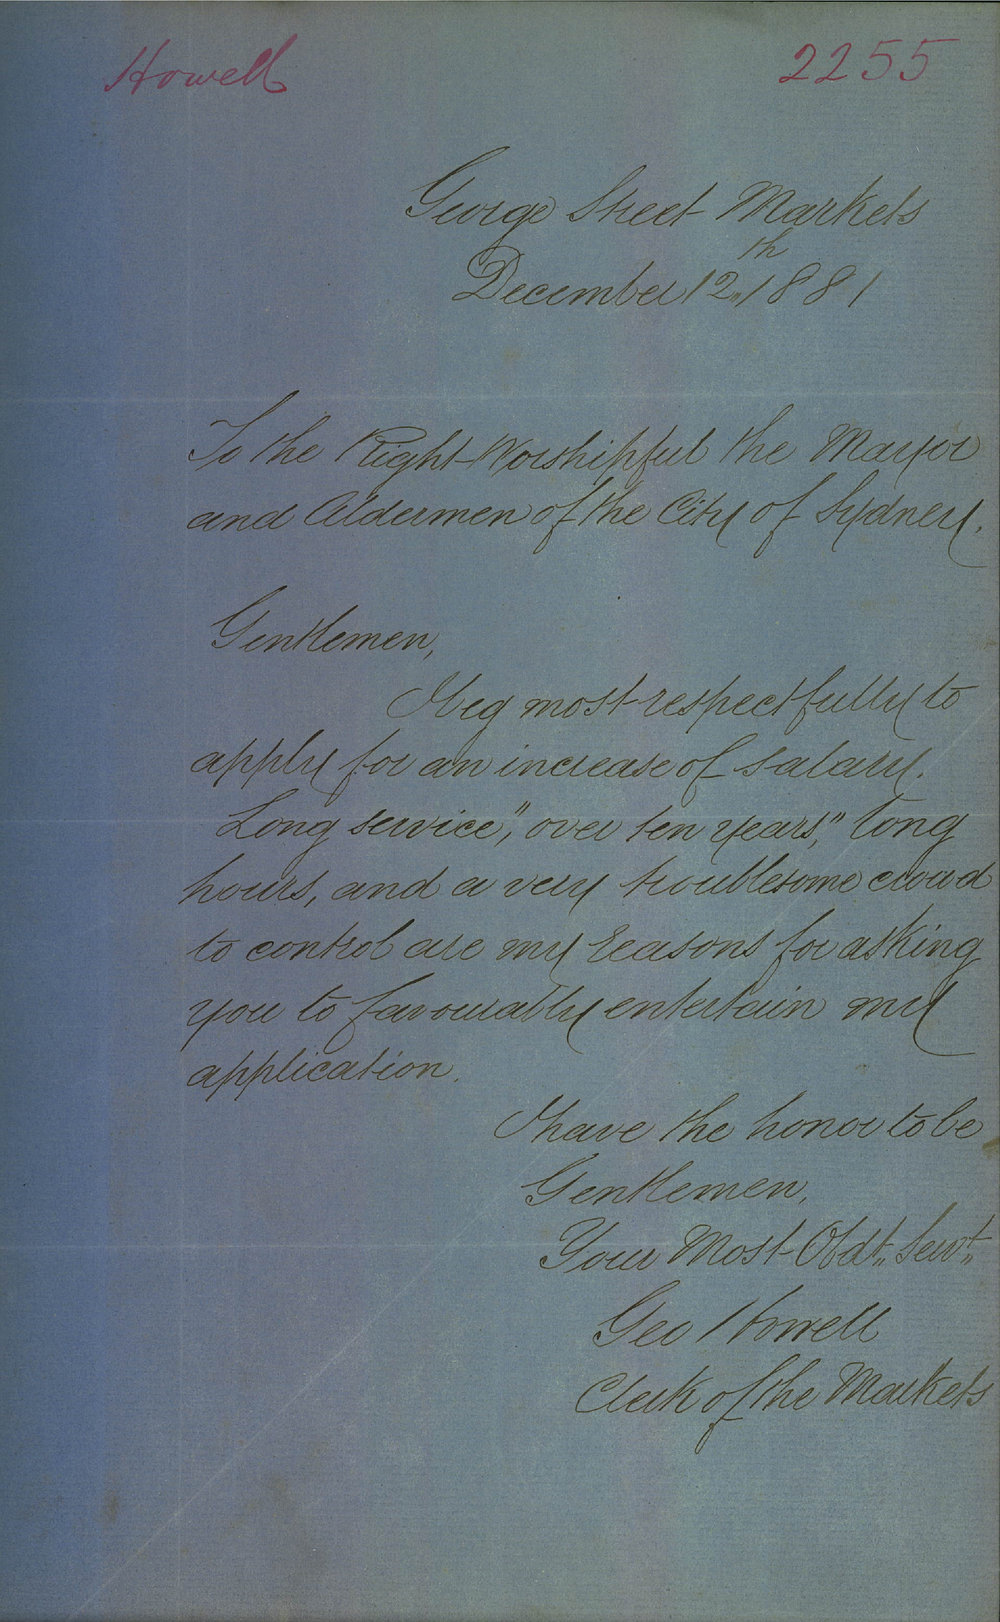 Howell 2255
George Street Markets
December 12th, 1881
To the Right Worshipful the Mayor
and Aldermen of the City of Sydney.
Gentlemen,
I beg most respectfully to
apply for an increase of salary.
Long service", over ten years," long
hours, and a very troublesome crowd
to control are my reasons for asking
you to favourably entertain my
application.
I have the honor to be
Gentlemen,
Your Most Obdt,, Servt,,
Geo Howell
Clerk of the Markets